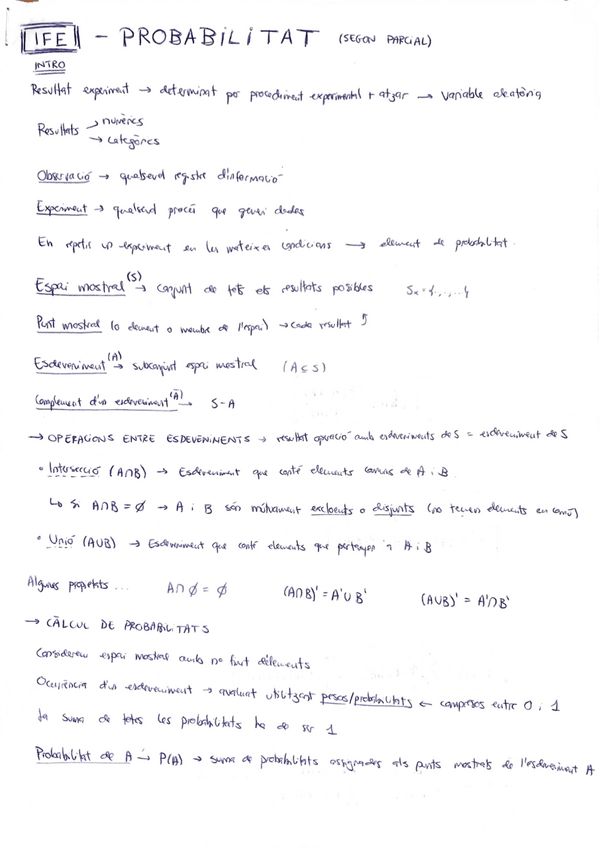 IFE - PROBABILITAT (SEGON PARCIAL)
INTRO
Resultat experiment → determinat per procediment experimental + atzar → Variable aleatòria
Resultats → numèrics
→ categòrics
Observació → qualsevol registre d'informació
Experiment → qualsevol procés que generi dades
En repetir un experiment en les mateixes condicions → element de probabilitat.
Espai mostral (S) → conjunt de tots els resultats possibles Sx = {., ..., }
Punt mostral (o element o membre de l'espai) → cada resultat
Esdeveniment (A) → subconjunt espai mostral (A ⊆ S)
Complement d'un esdeveniment (Ā) → S-A
→ OPERACIONS ENTRE ESDEVENIMENTS → resultat operació amb esdeveniments de S = esdeveniment de S
• Intersecció (A∩B) → Esdeveniment que conté elements comuns de A i B
↳ Si A∩B = ∅ → A i B són mútuament excloents o disjunts (no tenen elements en comú)
• Unió (A∪B) → Esdeveniment que conté elements que pertanyen a A i B
Algunes propietats ... A∩∅ = ∅ (A∩B)' = A'∪B' (A∪B)' = A'∩B'
→ CÀLCUL DE PROBABILITATS
Considerem espai mostral amb nº finit d'elements
Ocurrència d'un esdeveniment → avaluant utilitzant pesos/probabilitats ← compresos entre 0 i 1
La suma de totes les probabilitats ha de ser 1
Probabilitat de A → P(A) → suma de probabilitats assignades als punts mostrals de l'esdeveniment A